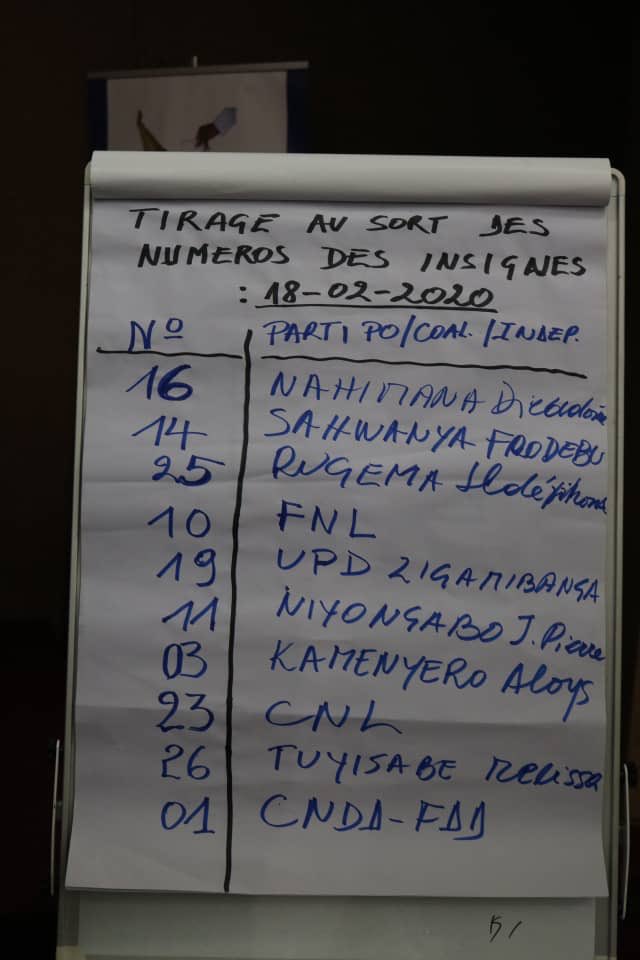 TIRAGE AU SORT DES
NUMEROS DES INSIGNES
: 18-02-2020
Nº PARTI PO/COAL./INDEP.
16 NAHIMANA Dieudonné
14 SAHWANYA FRODEBU
25 RUGEMA Ildéphonse
10 FNL
19 UPD ZIGAMIBANGA
11 NIYONGABO J. Pierre
03 KAMENYERO Aloys
23 CNL
26 TUYISABE Melissa
01 CNDD-FDD